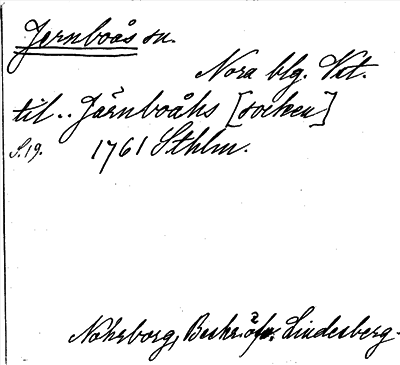 Jernboås sn.
Nora blg. Vst.
til.. Järnboåhs [socken]
S. 19. 1761 Sthlm.
Nohrborg, Beskr. öfv. Lindesberg.